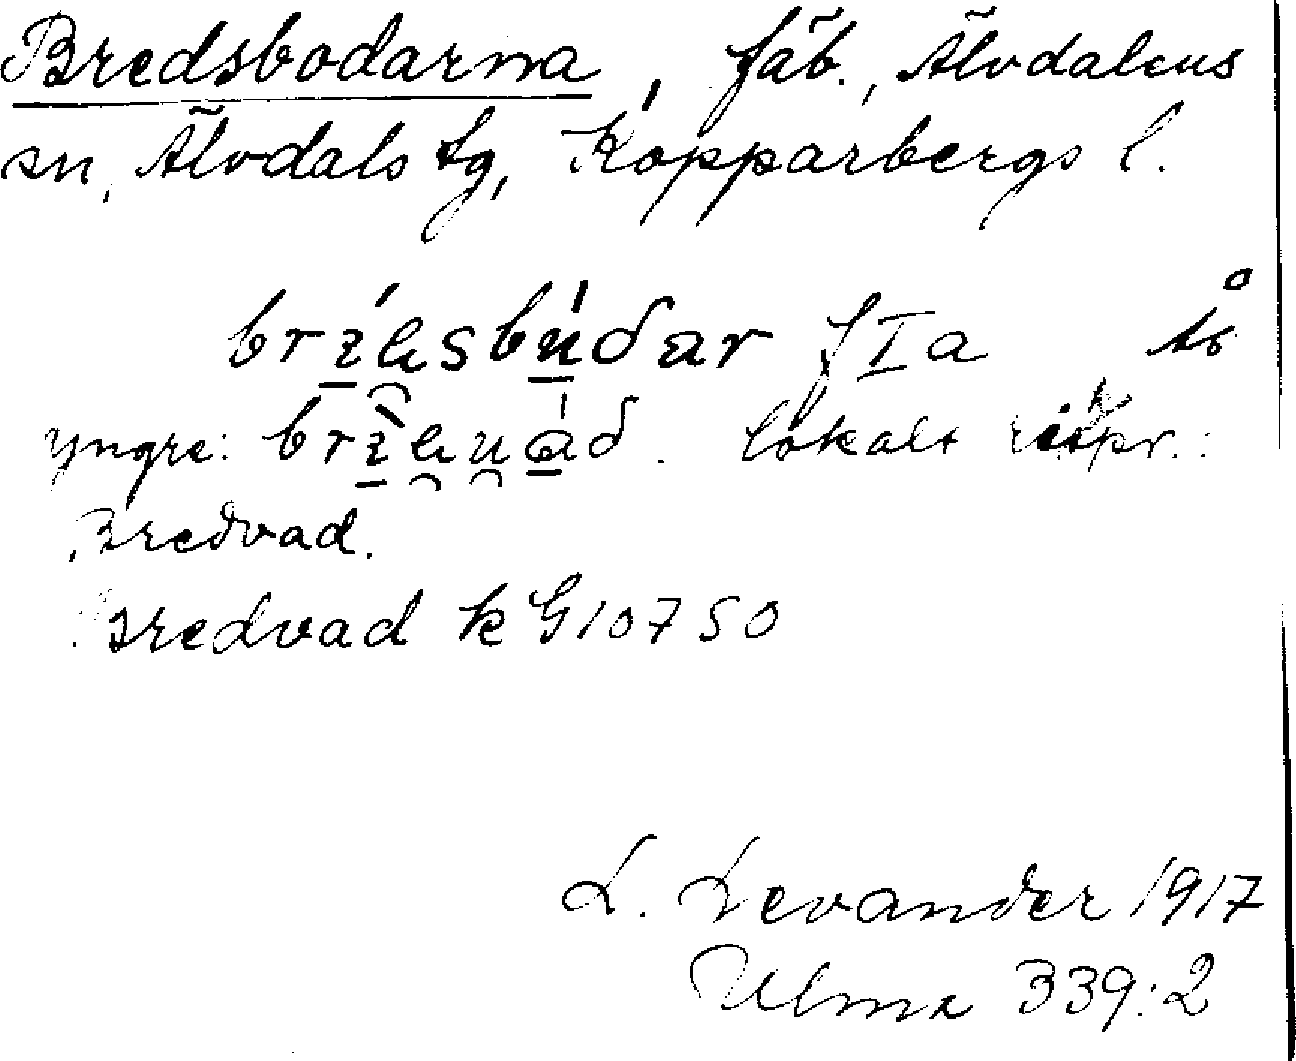 Bredsbodarna, fäb., Älvdalens
sn, Älvdals tg, Kopparbergs l.
f I a
yngre: lokalt
Bredvad.
Bredvad k G10750
L. Levander 1917
Ulma 339:2